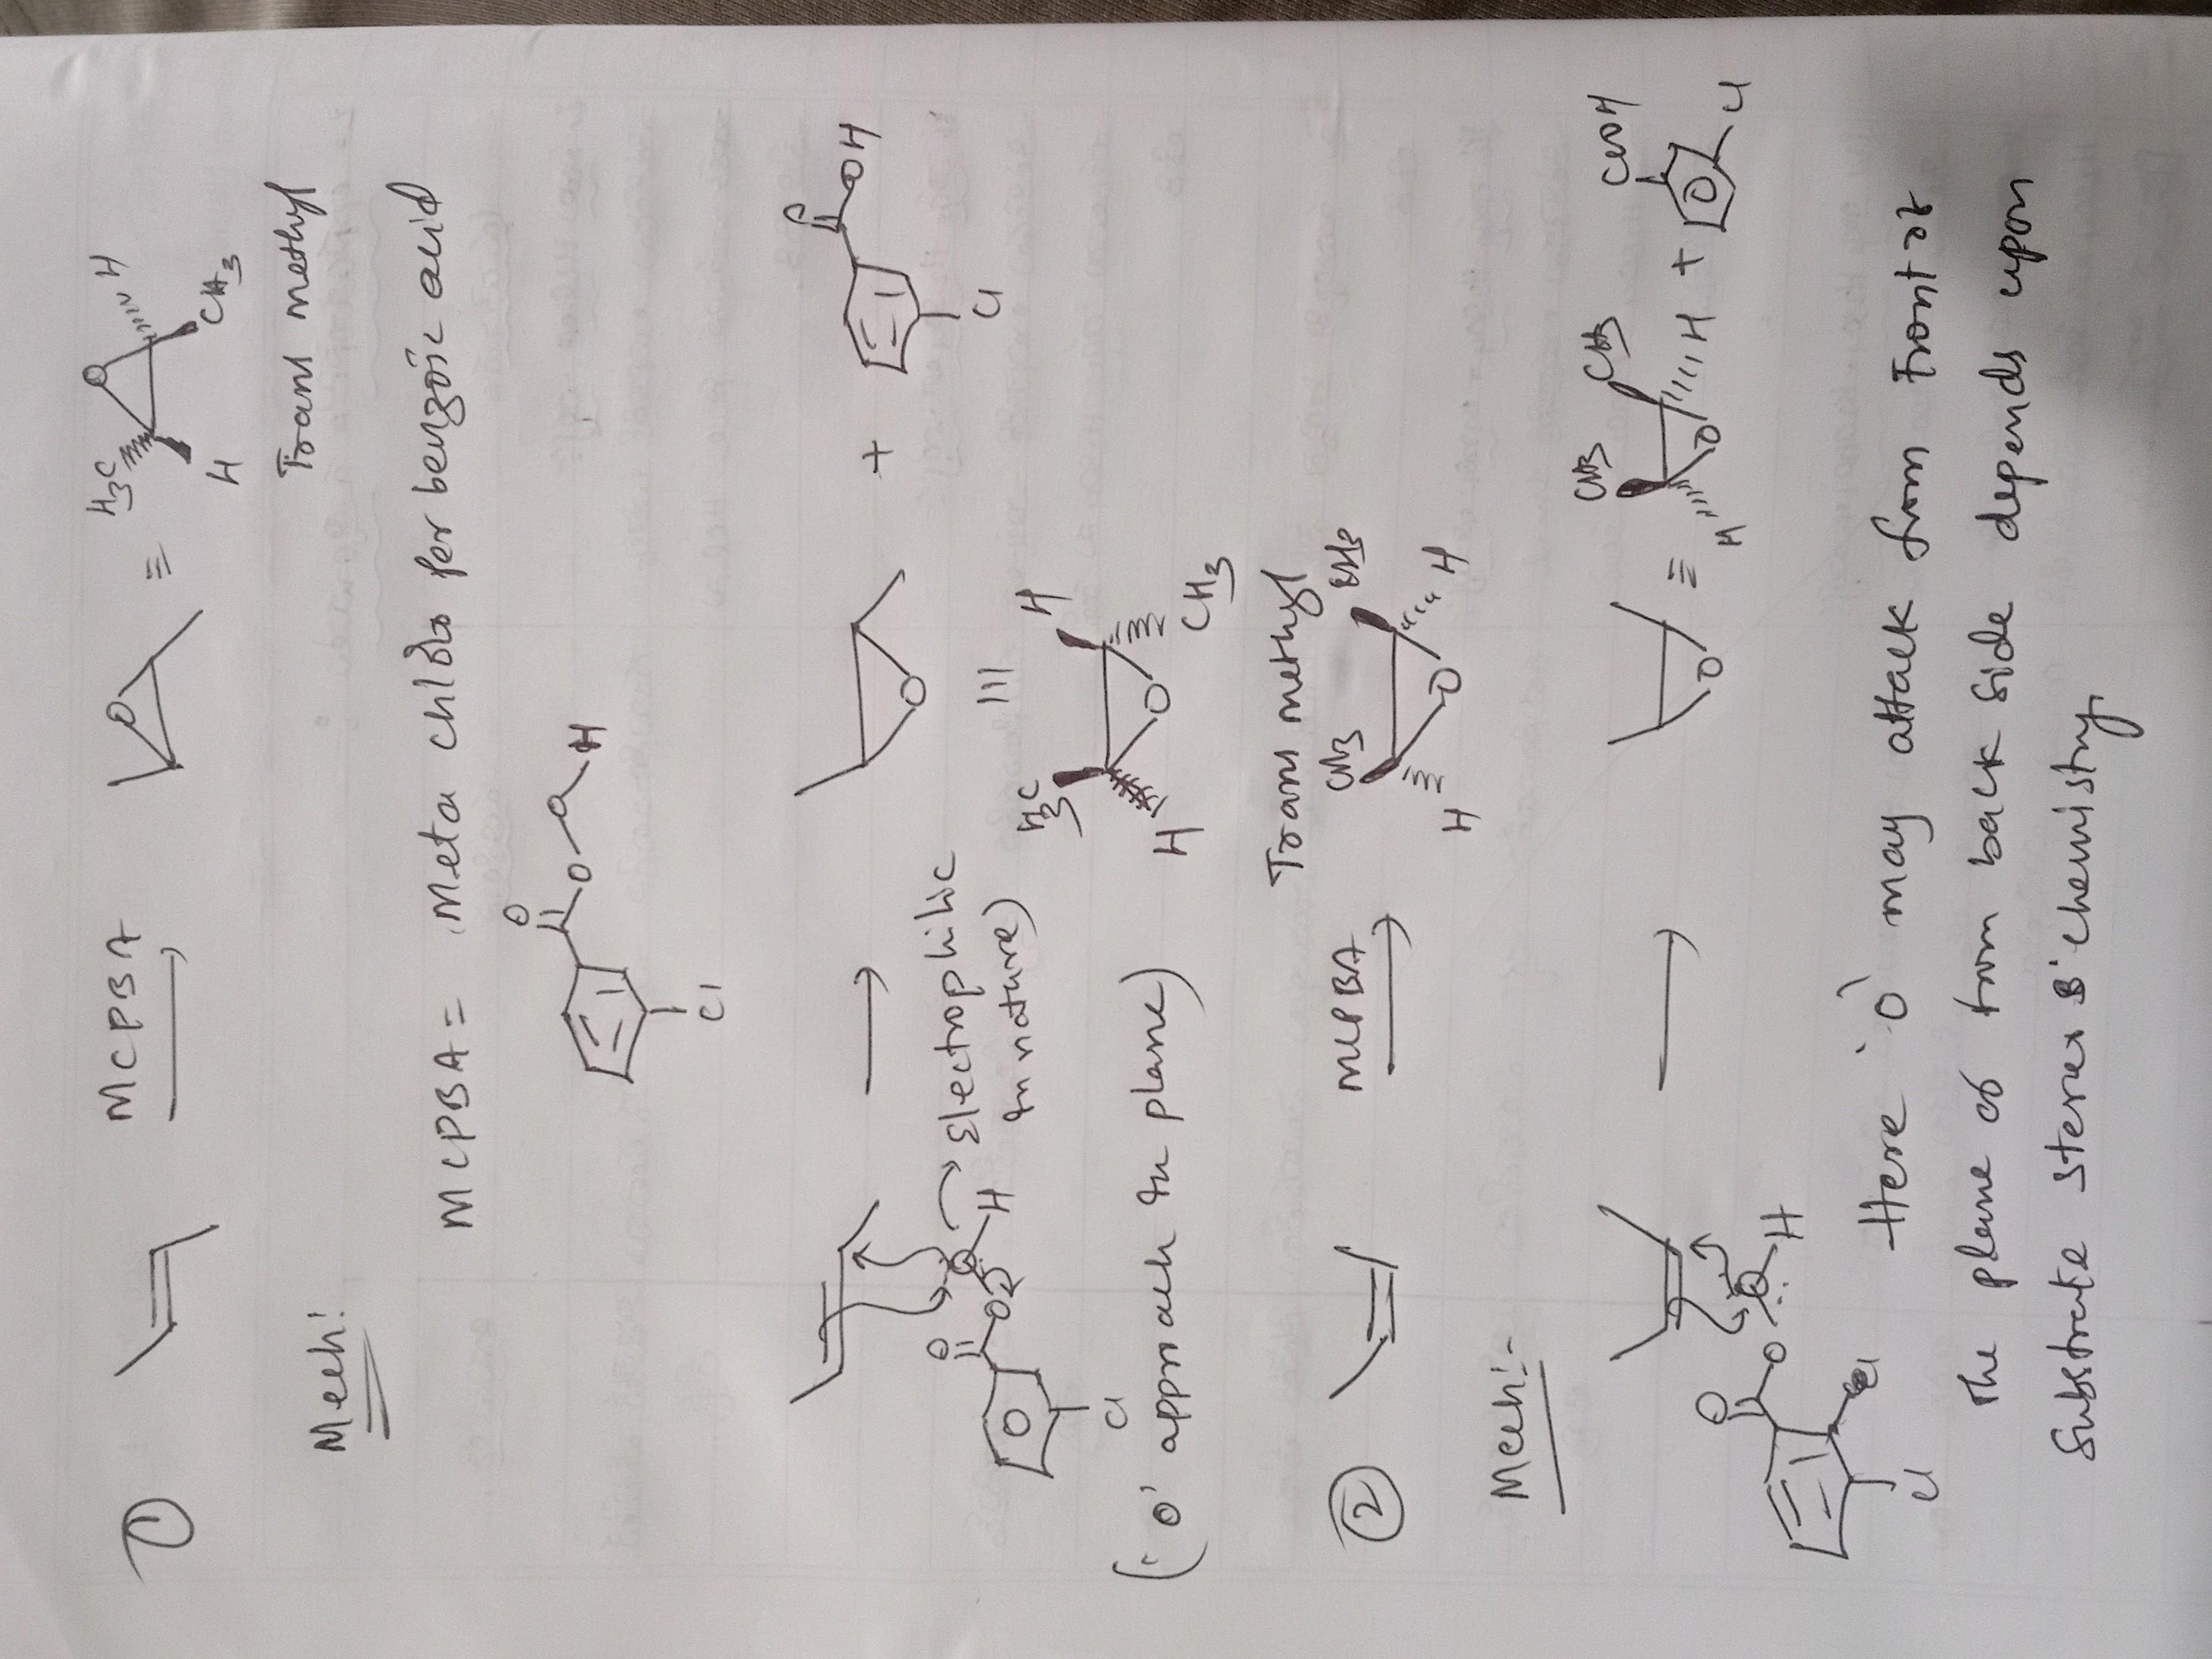 ① MCPBA O = H3C O H H CH3
Trans methyl
Mech:
MCPBA = Meta chloro per benzoic acid
O O H Cl
O O O H Cl → O + O OH Cl
Electrophilic
In nature)
H3C H O H CH3
('O' approach In plane)
Trans methyl
② MCPBA CH3 CH3 H O H
Mech:-
O O O H Cl → O = CH3 CH3 H O H + COOH Cl
Here 'O' may attack from Front or
the plane or from back side depends upon
Substrate stereo chemistry